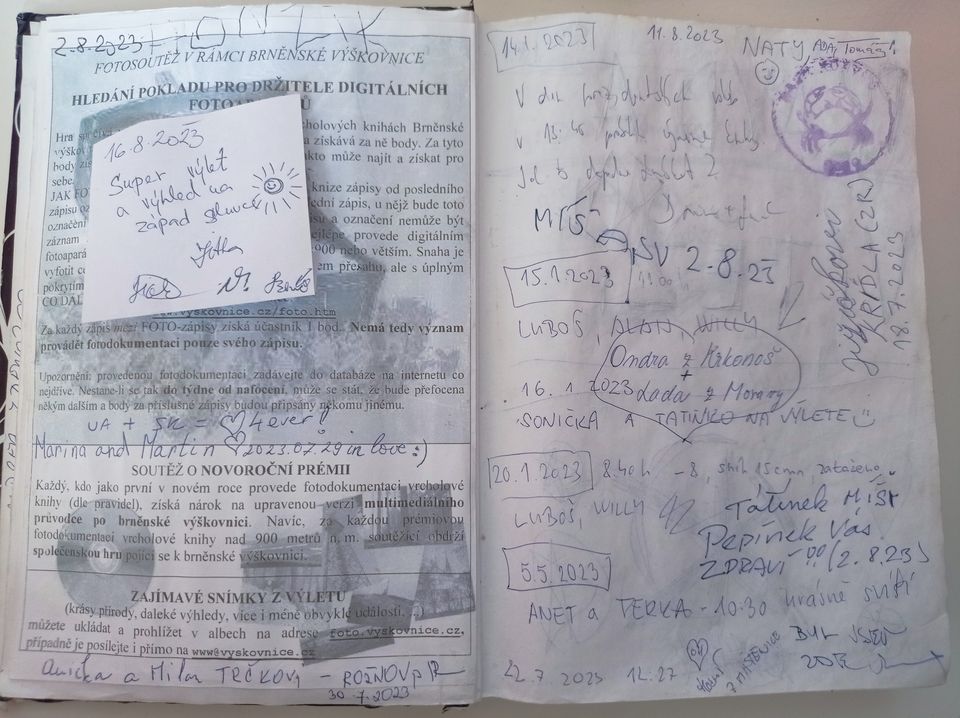 2.8.2023
FOTOSOUTĚŽ V RÁMCI BRNĚNSKÉ VÝŠKOVNICE
HLEDÁNÍ POKLADU PRO DRŽITELE DIGITÁLNÍCH
Hra
rcholových knihách Brněnské
výškov
a získává za ně body. Za tyto
body
kdo může najít a získat pro
sebe.
JAK FO
knize zápisy od posledního
zápisu
lední zápis, u nějž bude toto
označení
su a označení nemůže být
záznam
lépe provede digitálním
fotoapará
900 nebo větším. Snaha je
vyfotit
em přesahu, ale s úplným
pokrytím
CO DÁL
.vyskovnice.cz/foto.htm
Za každý zápis mezi FOTO-zápisy získá účastník 1 bod. Nemá tedy význam
provádět fotodokumentaci pouze svého zápisu.
Upozornění: provedenou fotodokumentaci zadávejte do databáze na internetu co
nejdříve. Nestane-li se tak do týdne od nafocení, může se stát, že bude přefocena
někým dalším a body za příslušné zápisy budou připsány někomu jinému.
UA + SK = ♡ 4ever!
Marina and Martin ♡ 2023.07.29 in love :)
SOUTĚŽ O NOVOROČNÍ PRÉMII
Každý, kdo jako první v novém roce provede fotodokumentaci vrcholové
knihy (dle pravidel), získá nárok na upravenou verzi multimediálního
průvodce po brněnské výškovnici. Navíc, za každou prémiovou
fotodokumentaci vrcholové knihy nad 900 metrů n. m. soutěžící obdrží
společenskou hru pojící se k brněnské výškovnici.
ZAJÍMAVÉ SNÍMKY Z VÝLETU
(krásy přírody, daleké výhledy, více i méně obvyklé události, ...)
můžete ukládat a prohlížet v albech na adrese foto.vyskovnice.cz,
případně je posílejte i přímo na www@vyskovnice.cz
Anička a Milan TRČKOVI - ROŽNOV p R
30.7.2023
16.8.2023
Super výlet
a výhled na
západ slunce
Jitka
14.1.2023
11.8.2023
NATY
Tomáš!
V den prezidentských voleb
v 13:40
MÍŠA
2.8.23
15.1.2023
LUBOŠ, ALAN, WILLY
Ondra z Krkonoš
+
Lada z Moravy
16.1.2023
SONIČKA A TATÍNKO NA VÝLETE
20.1.2023 8.40h -8, sníh 15cm, zataženo
LUBOŠ, WILLY
Tatínek
Pepínek Vás
ZDRAVÍ !! (2.8.23)
5.5.2023
ANET a TERKA - 10:30 krásně svítí
22.7.2023 12.27
KŘÍDLA (ZR)
18.7.2023